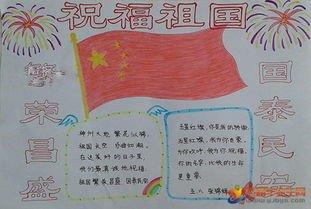 祝福祖国
繁荣昌盛
国泰民安
神州大地 繁花似锦,
祖国长空 乐曲如潮,
在这美好的日子里,
我们最真诚地祝福,
祖国繁荣昌盛 国泰民安
五星红旗, 你是我的骄傲,
五星红旗, 我为你自豪,
为你欢呼, 我为你祝福,
你的名字, 比我的生命
更重要